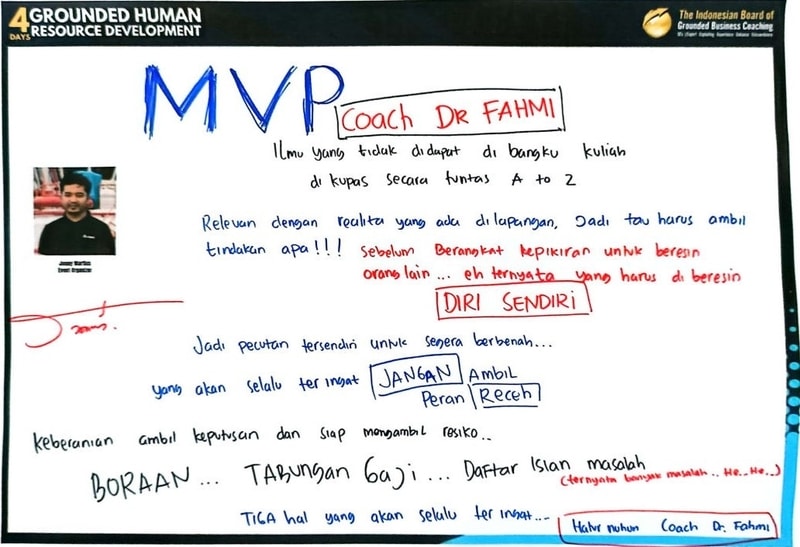 4 DAYS GROUNDED HUMAN
RESOURCE DEVELOPMENT
The Indonesian Board of
Grounded Business Coaching
MVP
COACH DR FAHMI
Ilmu yang tidak didapat di bangku kuliah
di kupas secara tuntas A to Z
Relevan dengan realita yang ada dilapangan, Jadi tau harus ambil
tindakan apa!!! Sebelum Berangkat kepikiran untuk beresin
orang lain... eh ternyata yang harus di beresin
DIRI SENDIRI
Jonny Martins
Event Organizer
Jadi pecutan tersendiri untuk segera berbenah...
yang akan selalu teringat JANGAN Ambil
Peran Receh
Keberanian ambil keputusan dan siap mengambil resiko..
BORAAN... TABUNGAN Gaji... Daftar Isian masalah
(ternyata banyak masalah.. He..He..)
TIGA hal yang akan selalu teringat...
Hatur nuhun Coach Dr. Fahmi